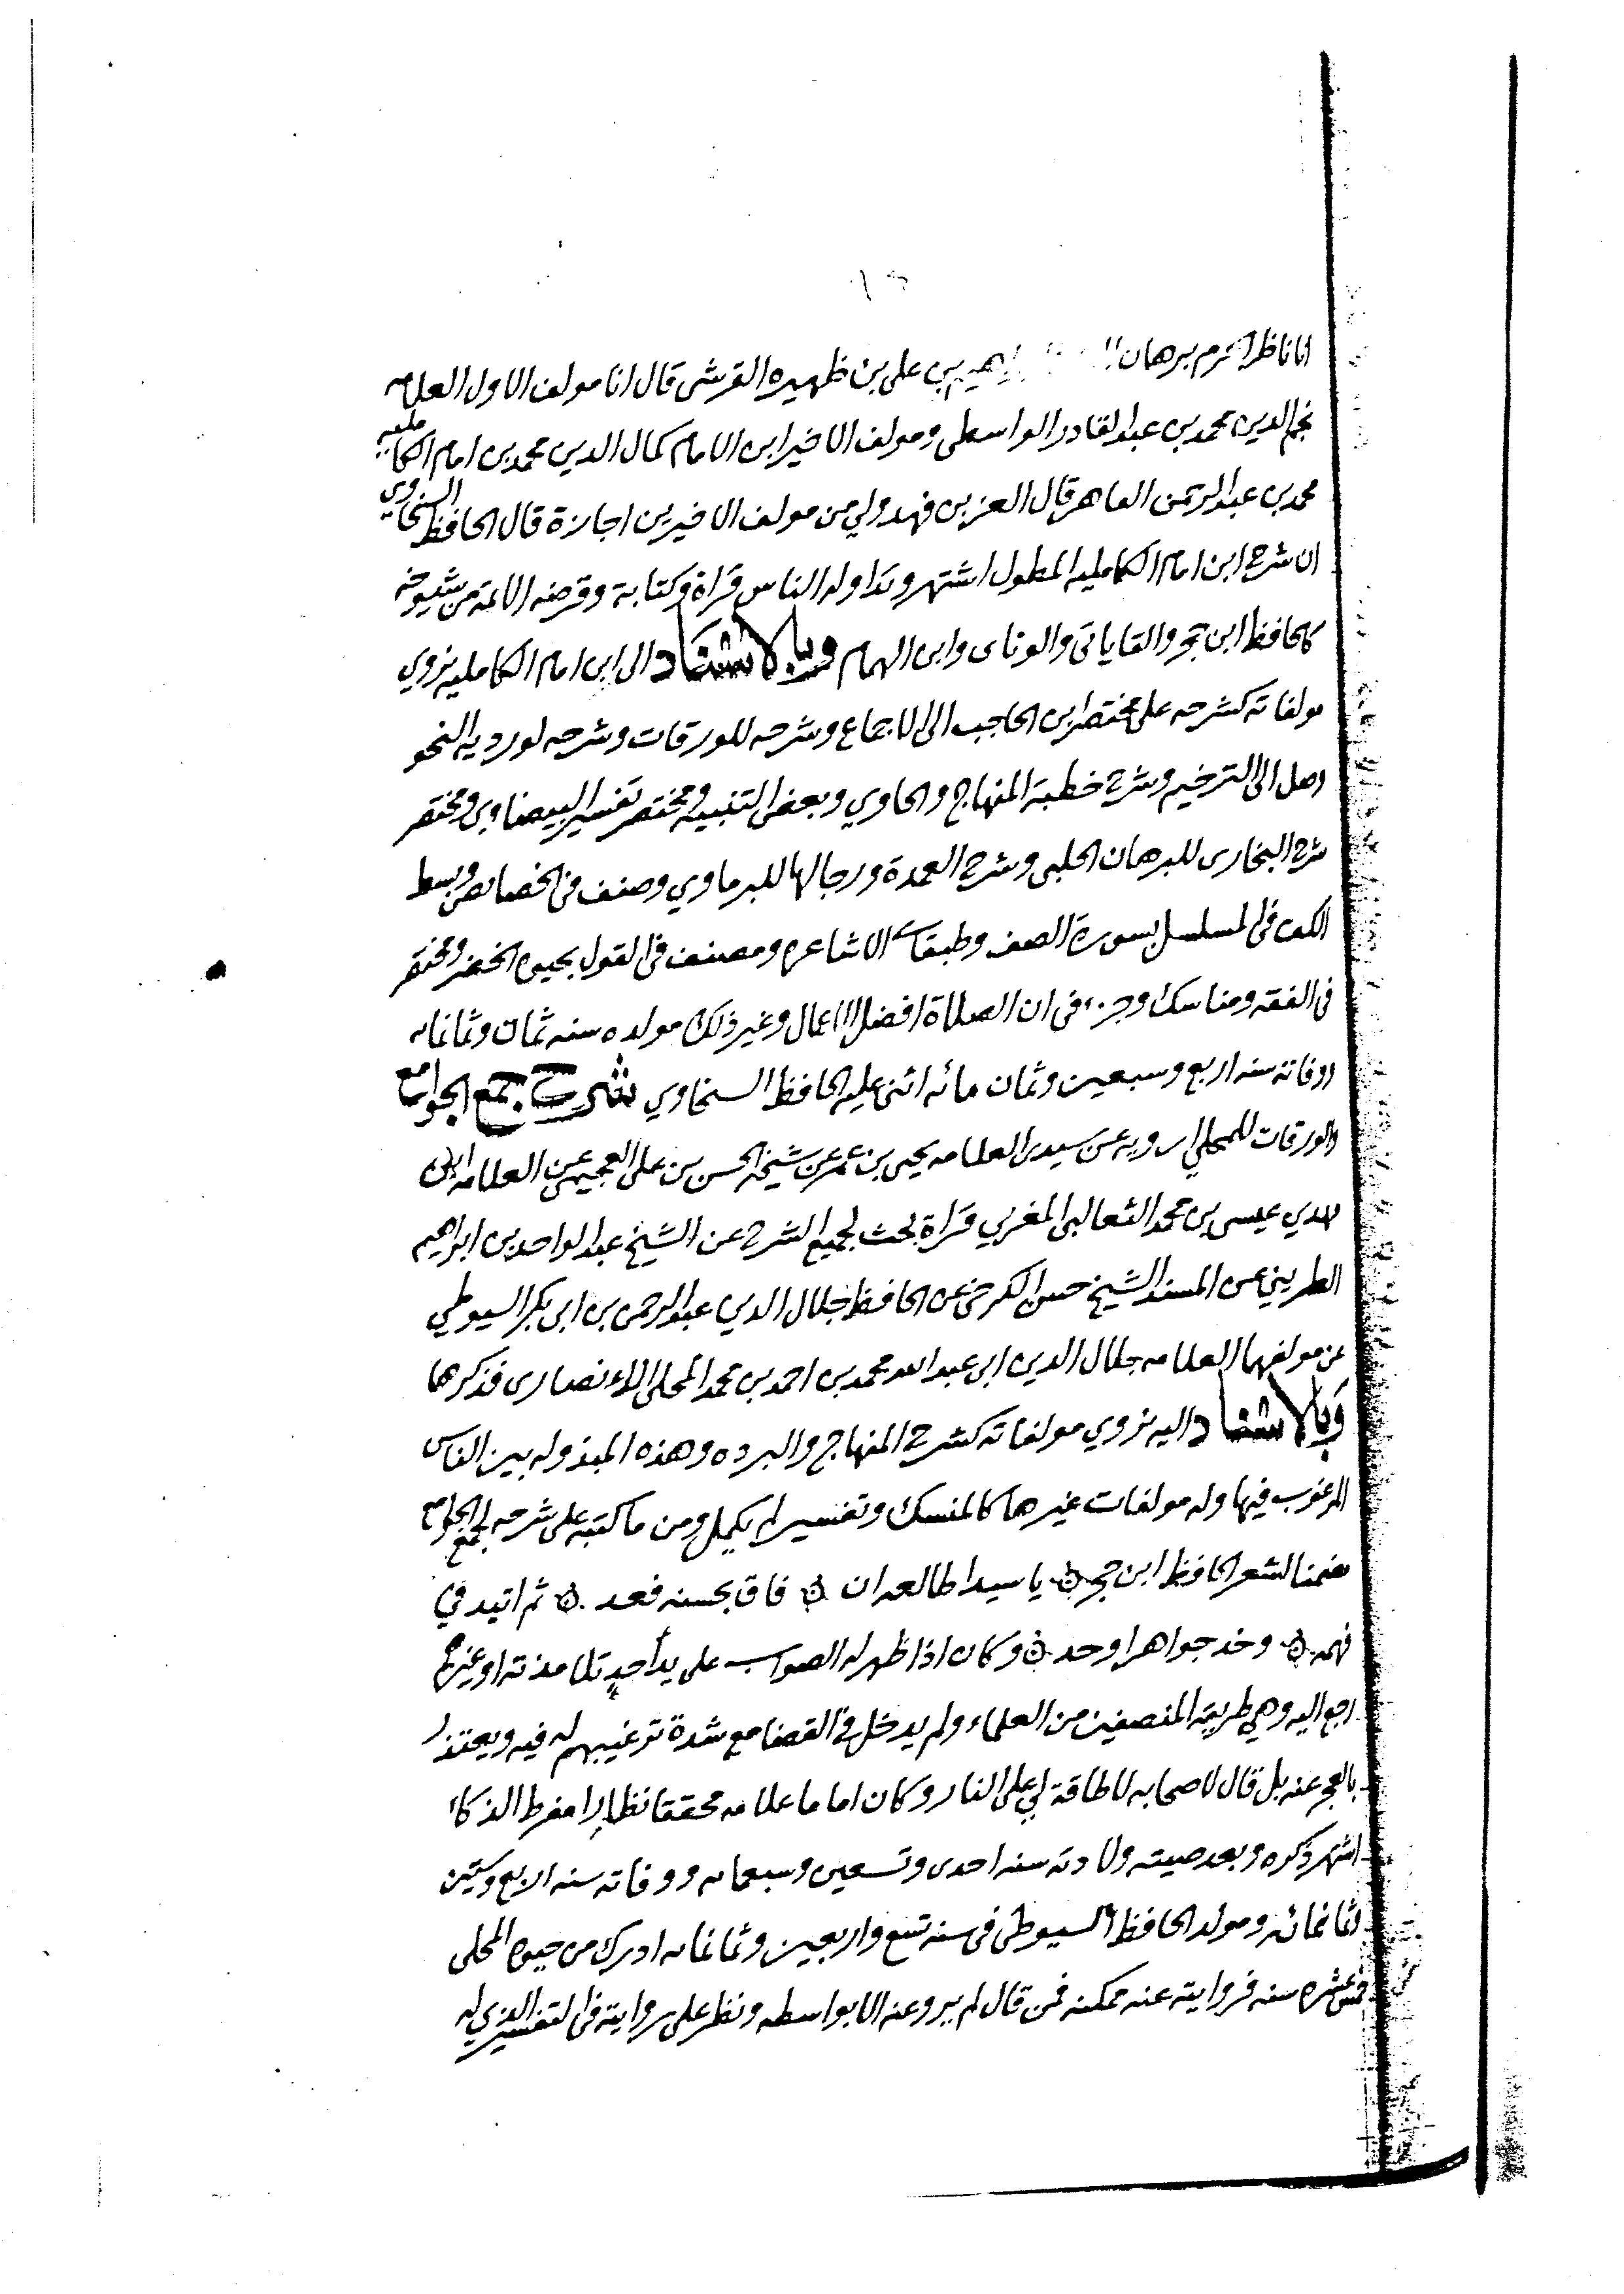 انا ناظر الحرم برهان ابراهيم بن علي بن ظهيره القرشي قال انا مولف الاول العلامه
نجم الدين محمد بن عبد القادر الواسطي ومولف الاخير ابن الامام كمال الدين محمد بن امام الكامليه
محمد بن عبد الرحمن القاهر قال العز بن فهد ولي من مولف الاخيرين اجازة قال الحافظ السخاوي
ان شرح ابن امام الكامليه المطول اشتهر وتداوله الناس قراة وكتابة وقرضه الائمة من شيوخه
كالحافظ ابن حجر والقاياتي والوناى وابن الهمام وبالاسناد الى ابن امام الكامليه نروي
مولفاته كشرحه على مختصر ابن الحاجب الى الاجماع وشرحه للورقات وشرحه لورديه النحو
وصل الى الترخيم وشرح خطبة المنهاج والحاوي وبعض التنبيه ومختصر تفسير البيضاوى ومختصر
شرح البخارى للبرهان الحلبى وشرح العمدة ورجالها للبرماوي وصنف فى الخصائص وبسط
الكف فى المسلسل بسورة الصف وطبقات الاشاعره ومصنف فى القول بحيوه الخضر ومختصر
فى الفقه ومناسك وجزء فى ان الصلاة افضل الاعمال وغير ذلك مولده سنه ثمان وثمانمايه
ووفاته سنه اربع وسبعين وثمان مائه اثنى عليه الحافظ السخاوي شرح جمع الجوامع
والورقات للمحلي ارويه عن سيدى العلامه يحيى بن عمر عن شيخه الحسن بن على العجيمي عن العلامه ابى
مهدي عيسى بن محمد الثعالبى المغربي قراة بحث لجميع الشرح عن الشيخ عبد الواحد بن ابراهيم
الطريني عن المسند الشيخ حسن الكرخى عن الحافظ جلال الدين عبد الرحمن بن ابى بكر السيوطي
عن مولفهما العلامه جلال الدين ابى عبد الله محمد بن احمد بن محمد المحلى الانصارى فذكرها
وبالاسناد اليه نروي مولفاته كشرح المنهاج والبرده وهذه المبذوله بين الناس
المرغوب فيها وله مولفات غيرها كالمنسك وتفسير لم يكمل ومن ما كتبه على شرحه لجمع الجوامع
مضمنا لشعر الحافظ ابن حجر يا سيدا طالعه ان فاق بحسنه فعد ثم اتيد في
فهمه وخذ جواهرا وحد وكان اذا ظهر له الصواب على يد أحد تلامذته او غيرهم
رجع اليه وهي طريقة المنصفين من العلماء ولم يدخل فى القضا مع شدة ترغيبهم له فيه ويعتذر
بالعجز عنه بل قال لاصحابه لا طاقة لي على النار وكان اماما علامه محققا نظارا مفرط الذكاء
اشتهر ذكره وبعد صيته ولادته سنه احدى وتسعين وسبعمايه ووفاته سنه اربع وستين
وثمانمائه ومولد الحافظ السيوطى فى سنه تسع واربعين وثمانمايه ادرك من حيوه المحلى
خمس عشره سنه فروايته عنه ممكنه فمن قال لم يرو عنه الا بواسطه ونظر على روايته فى التفسير الذي له